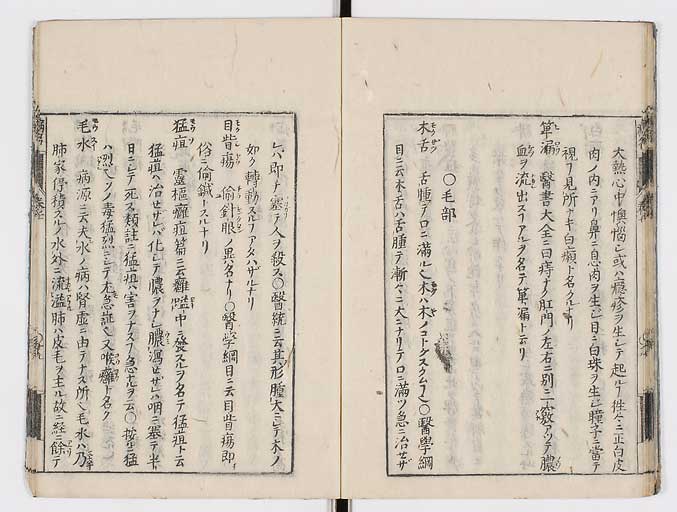 大熱心中懊惱シ或ハ癮疹ヲ生シテ起ルヿ徃々ニ正白皮
肉ノ内ニアリ鼻ニ息肉ヲ生シ目ニ白珠ヲ生シ瞳子ニ當テ
視ヿ見所ナキ白癩ト名クルナリ
箄漏 醫書大全ニ曰痔ナリ肛門ノ左右ニ別ニ一竅アツテ膿
血ヲ流シ出スヿアルヲ名テ箄漏ト云リ
〇毛部
木舌 舌腫テ口ニ滿ル也木ハ木ノコトクスクム也〇醫學綱
目ニ云木舌ハ舌腫テ漸々ニ大ニナリテ口ニ滿ツ急ニ治セザ
レバ即チ塞テ人ヲ殺ス〇醫統ニ云其形腫大ニシテ木ノ
如ク轉動スルヿアタハザルナリ
目眥瘍 偷針眼ノ異名ナリ〇醫學綱目ニ云目眥瘍即
俗ニ偷鍼トスルナリ
猛疽 靈樞癰疽篇ニ云癰嗌中ニ發スルヲ名テ猛疽ト云
猛疽ハ治セザレバ化シテ膿ヲナシ膿瀉セザレハ咽ニ塞テ半
日ニシテ死ス類註ニ猛疽ハ害ヲナスヿ急ナルヲ云〇按ニ猛
ハ烈也ソノ毒猛烈ニシテ太急証也又喉癰ト名ク
毛水 病源ニ云夫水ノ病ハ腎虛ニ由テナス所也毛水ハ乃
肺家停積スルノ水外ニ流溢肺ハ皮毛ヲ主ル故ニ經ニ餘テ